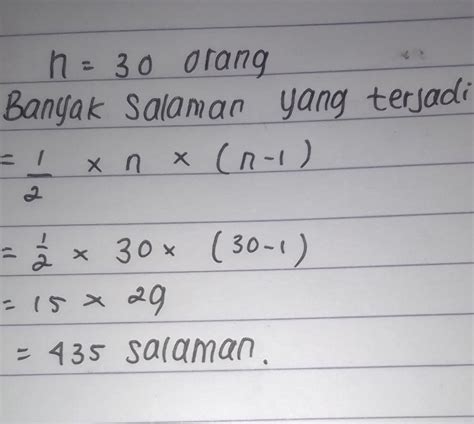 n = 30 orang
Banyak Salaman yang terjadi
= 1/2 × n × (n-1)
= 1/2 × 30 × (30-1)
= 15 × 29
= 435 Salaman.